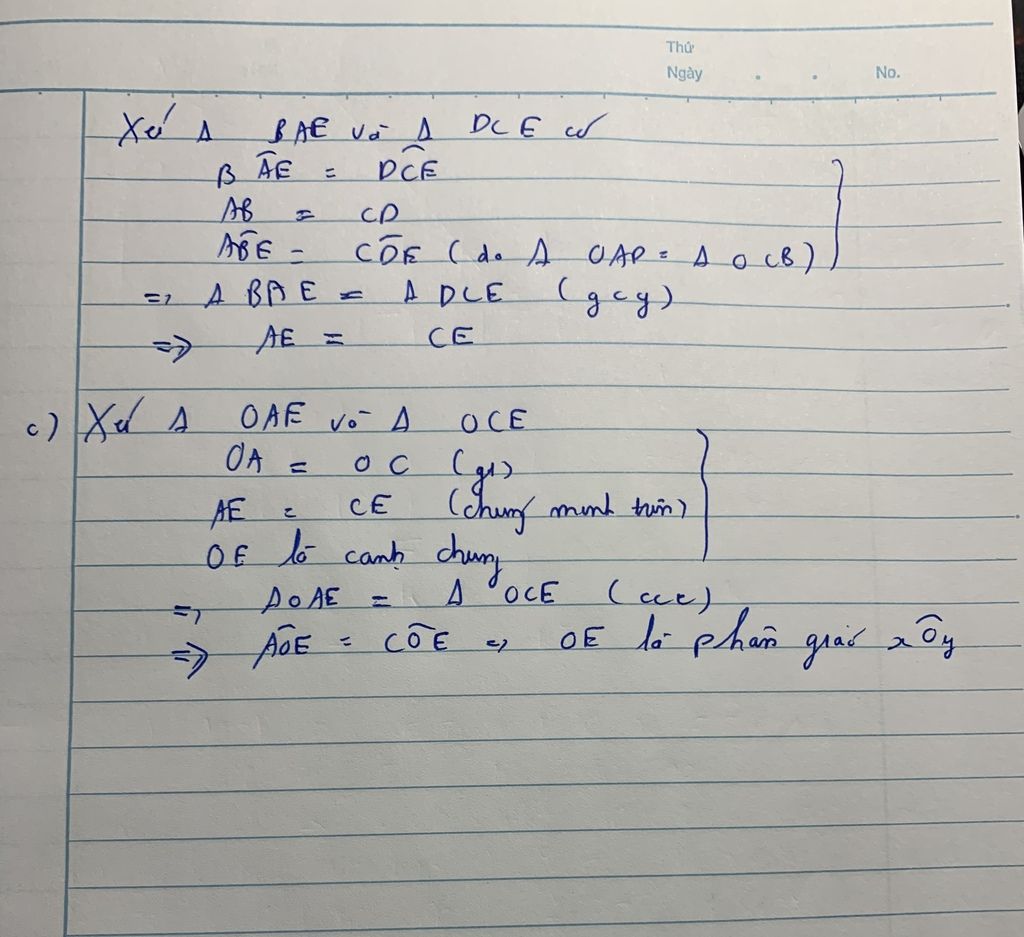 Thứ
Ngày . . No.
Xét Δ BAE và Δ DCE có
BÂE = DĈE
AB = CD
AB̂E = CD̂E (do Δ OAD = Δ OCB)
=> Δ BAE = Δ DCE (gcg)
=> AE = CE
c) Xét Δ OAE và Δ OCE
OA = OC (gt)
AE = CE (chứng minh trên)
OE là cạnh chung
=> ΔOAE = Δ OCE (ccc)
=> AÔE = CÔE => OE là phân giác xÔy